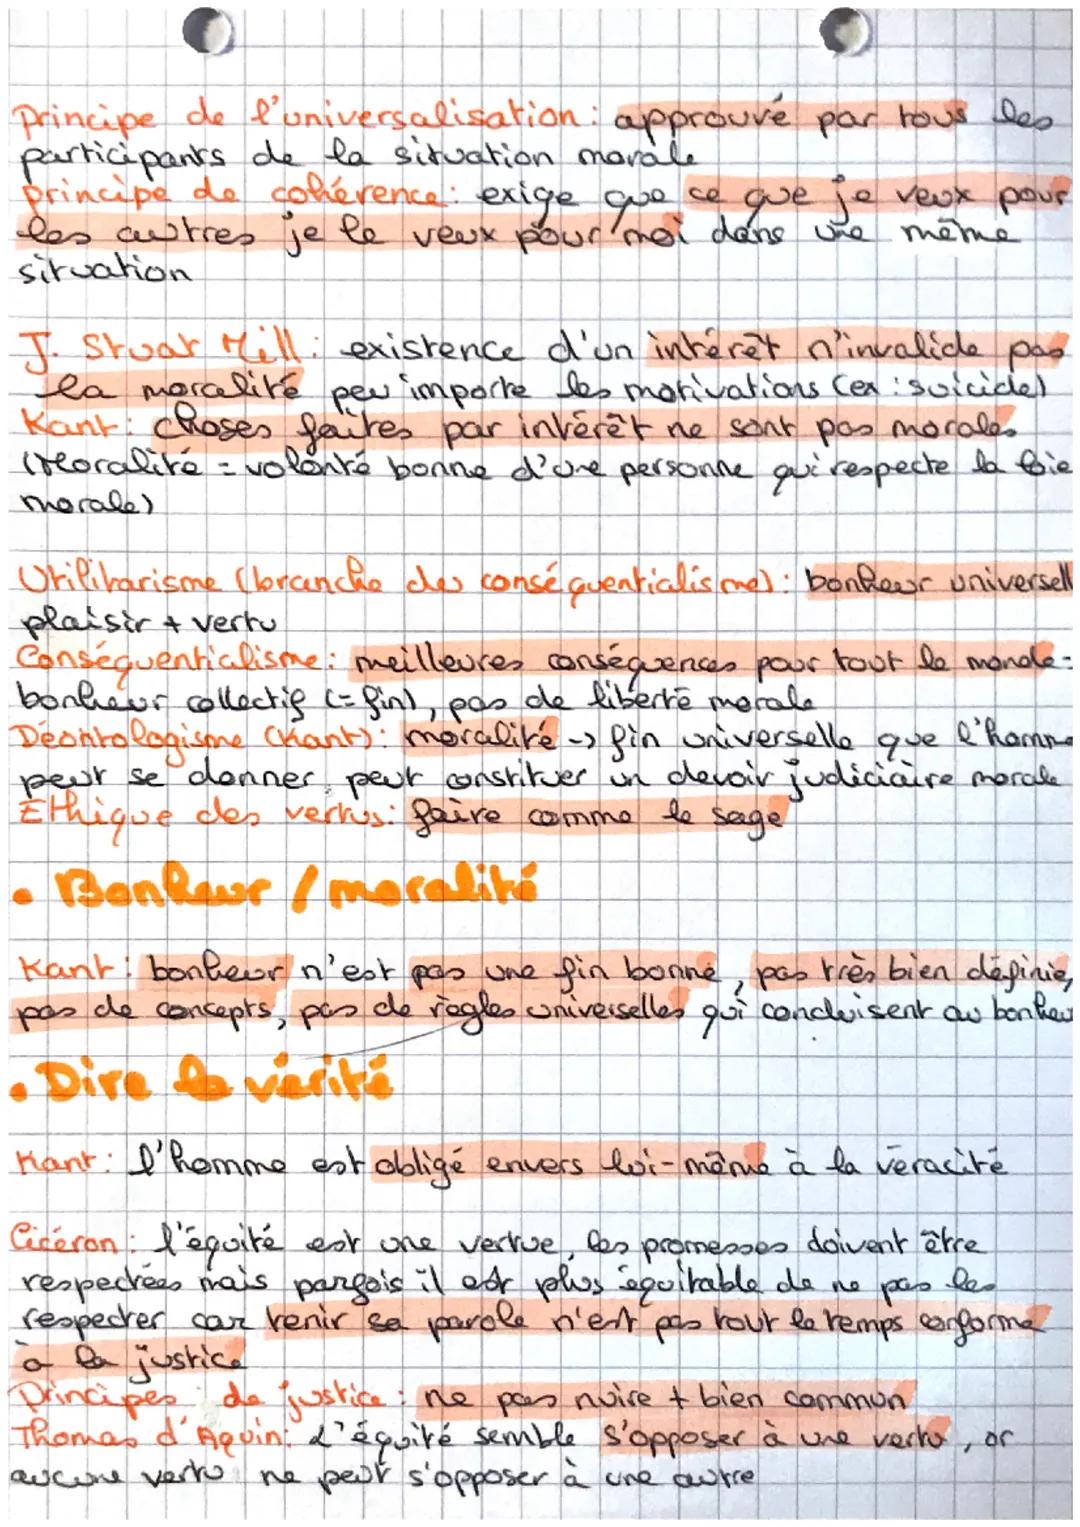 principe de l'universalisation : approuvé par tous les
participants de la situation morale
principe de cohérence : exige que ce que je veux pour
les autres je le veux pour moi dans une même
situation
J. Stuar Mill : existence d'un intérêt n'invalide pas
la moralité peu importe les motivations (ex : suicide)
Kant : choses faites par intérêt ne sont pas morales
(Moralité = volonté bonne d'une personne qui respecte la loie
morale)
Utilitarisme (branche du conséquentialisme) : bonheur universell
plaisir + vertu
Conséquentialisme : meilleures conséquences pour tout le monde =
bonheur collectif (= fin), pas de liberté morale
Déontologisme (Kant) : moralité -> fin universelle que l'homme
peut se donner, peut constituer un devoir judiciaire morale
Ethique des vertus : faire comme le sage
• Bonheur / moralité
Kant : bonheur n'est pas une fin bonne, pas très bien définie,
pas de concepts, pas de règles universelles qui conduisent au bonheur
• Dire la vérité
Kant : l'homme est obligé envers lui-même à la véracité
Cicéron : l'équité est une vertue, les promesses doivent être
respectées mais parfois il est plus équitable de ne pas les
respecter car tenir sa parole n'est pas tout le temps conforme
à la justice
Principes de justice : ne pas nuire + bien commun
Thomas d'Aquin : L'équité semble s'opposer à une vertu, or
aucune vertu ne peut s'opposer à une autre